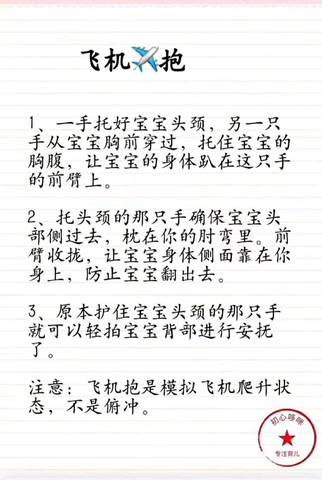 飞机✈️抱
1、一手托好宝宝头颈，另一只
手从宝宝胸前穿过，托住宝宝的
胸腹，让宝宝的身体趴在这只手
的前臂上。
2、托头颈的那只手确保宝宝头
部侧过去，枕在你的肘弯里。前
臂收拢，让宝宝身体侧面靠在你
身上，防止宝宝翻出去。
3、原本护住宝宝头颈的那只手
就可以轻拍宝宝背部进行安抚
了。
注意：飞机抱是模拟飞机爬升状
态，不是俯冲。
初心哆咪
专注育儿